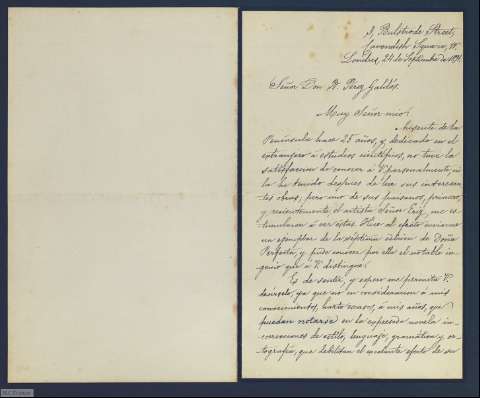 3, Bulstrode Street,
Cavendish Square, W.
Londres, 24 de Septiembre de
Señor Don B. Pérez Galdós.
Muy Señor mio:
Ausente de la
Península hace 25 años, y dedicado en el
extrangero á estudios científicos, no tuve la
satisfaccion de conocer á V. personalmente, ni
la he tenido despues de leer sus interesan-
tes obras; pero uno de sus paisanos, primero,
y recientemente el artista Señor me es-
timularon á ver éstas. Hice al efecto enviarme
un ejemplar de la séptima edicion de Doña
Perfecta, y pude conocer por ella el notable in-
genio que á V. distingue.
Es de sentir, y espero me permita V.
decírselo, ya que no en consideracion á mis
conocimientos, harto escasos, á mis años, que
puedan notarse en la expresada novela in-
correcciones de estilo, lenguage, gramática y or-
tografía, que debilitan el excelente efecto de su